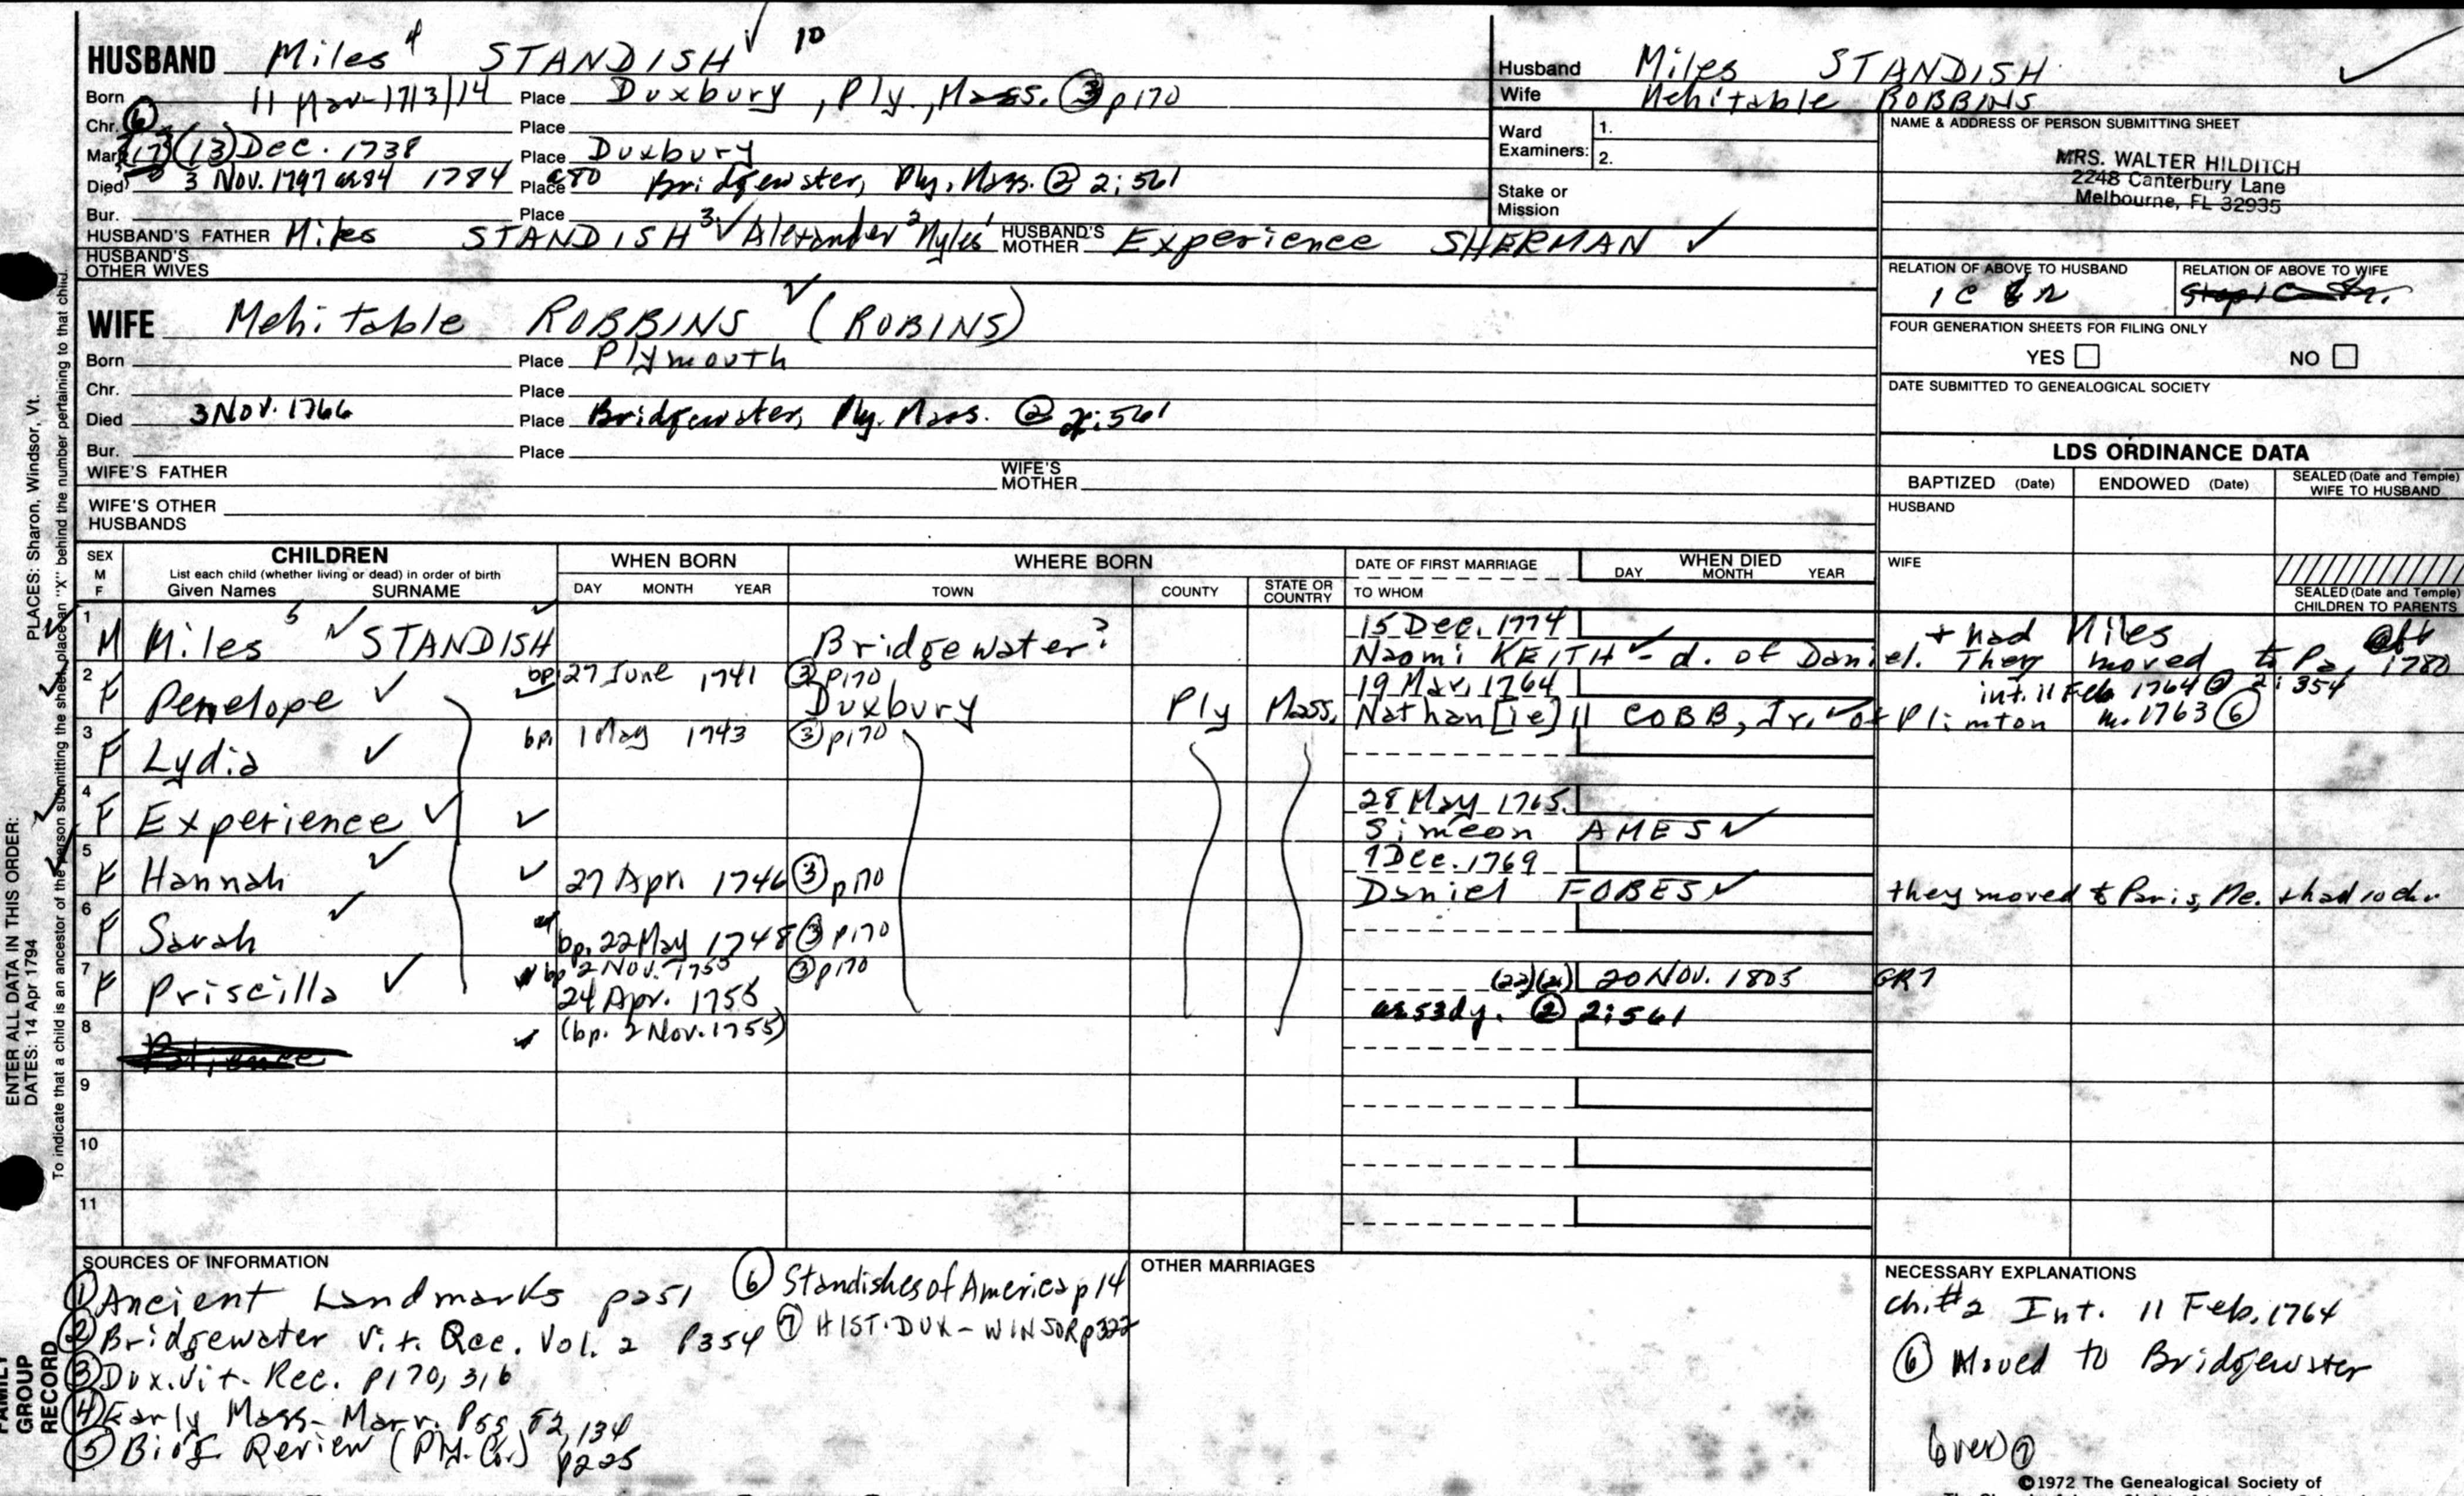 HUSBAND Miles 4 STANDISH ✓ 10
Born 11 Mar 1713/14 Place Duxbury, Ply., Mass. ③ p170
Chr. ⑥ Place
Mar. (13) Dec. 1738 Place Duxbury
Died 3 Nov. 1797 ae84 1784 Place ae80 Bridgewater, Ply. Mass. ② 2:561
Bur. Place
HUSBAND'S FATHER Miles STANDISH 3 ✓ Alexander 2 Myles 1 HUSBAND'S MOTHER Experience SHERMAN ✓
HUSBAND'S OTHER WIVES
Husband Miles STANDISH
Wife Mehitable ROBBINS
Ward Examiners: 1.
2.
Stake or Mission
NAME & ADDRESS OF PERSON SUBMITTING SHEET
MRS. WALTER HILDITCH
2248 Canterbury Lane
Melbourne, FL 32935
RELATION OF ABOVE TO HUSBAND
RELATION OF ABOVE TO WIFE
FOUR GENERATION SHEETS FOR FILING ONLY
YES NO
DATE SUBMITTED TO GENEALOGICAL SOCIETY
WIFE Mehitable ROBBINS ✓ (ROBINS)
Born Place Plymouth
Chr. Place
Died 3 Nov. 1766 Place Bridgewater, Ply. Mass. ② 2:561
Bur. Place
WIFE'S FATHER WIFE'S MOTHER
WIFE'S OTHER HUSBANDS
LDS ORDINANCE DATA
BAPTIZED (Date) ENDOWED (Date) SEALED (Date and Temple) WIFE TO HUSBAND
HUSBAND
WIFE
SEALED (Date and Temple) CHILDREN TO PARENTS
SEX M F
CHILDREN
List each child (whether living or dead) in order of birth
Given Names SURNAME
WHEN BORN
DAY MONTH YEAR
WHERE BORN
TOWN COUNTY STATE OR COUNTRY
DATE OF FIRST MARRIAGE
TO WHOM
WHEN DIED
DAY MONTH YEAR
1 M Miles 5 ✓ STANDISH Bridgewater? 15 Dec. 1774
Naomi KEITH ✓ - d. of Daniel. + had Miles They moved to Pa, aft 1780
2 F Penelope ✓ bp 27 June 1741 ③ p170 Duxbury Ply Mass. 19 Mar, 1764
Nathan[ie]ll COBB, Jr. ✓ of Plimton int. 11 Feb 1764 ② 2:354 m. 1763 ⑥
3 F Lydia ✓ bp. 1 May 1743 ③ p170
4 F Experience ✓ ✓ 28 May 1765
Simeon AMES ✓
5 F Hannah ✓ ✓ 27 Apr. 1746 ③ p170 7 Dec. 1769
Daniel FOBES ✓ they moved to Paris, Me. + had 10 ch.
6 F Sarah ✓ bp. 22 May 1748 ③ p170
7 F Priscilla ✓ bp 2 Nov. 1755 ③ p170 20 Nov. 1805 GR7
24 Apr. 1755
ae 53dy. ② 2:561
8 Patience (bp. 2 Nov. 1755)
9
10
11
SOURCES OF INFORMATION
① Ancient Landmarks p251
② Bridgewater Vit. Rec. Vol. 2 P354
③ Dux. Vit. Rec. P170, 316
④ Early Mass. Marr. P55, 52, 134
⑤ Biog. Review (Ply. Co.) p225
⑥ Standishes of America p14
⑦ HIST. DUX - WINSOR p322
OTHER MARRIAGES
NECESSARY EXPLANATIONS
ch. #2 Int. 11 Feb. 1764
⑥ Moved to Bridgewater
(over) ⑦
©1972 The Genealogical Society of
ENTER ALL DATA IN THIS ORDER:
DATES: 14 Apr 1794 PLACES: Sharon, Windsor, Vt.
To indicate that a child is an ancestor of the person submitting the sheet, place an "X" behind the number pertaining to that child.
FAMILY GROUP RECORD